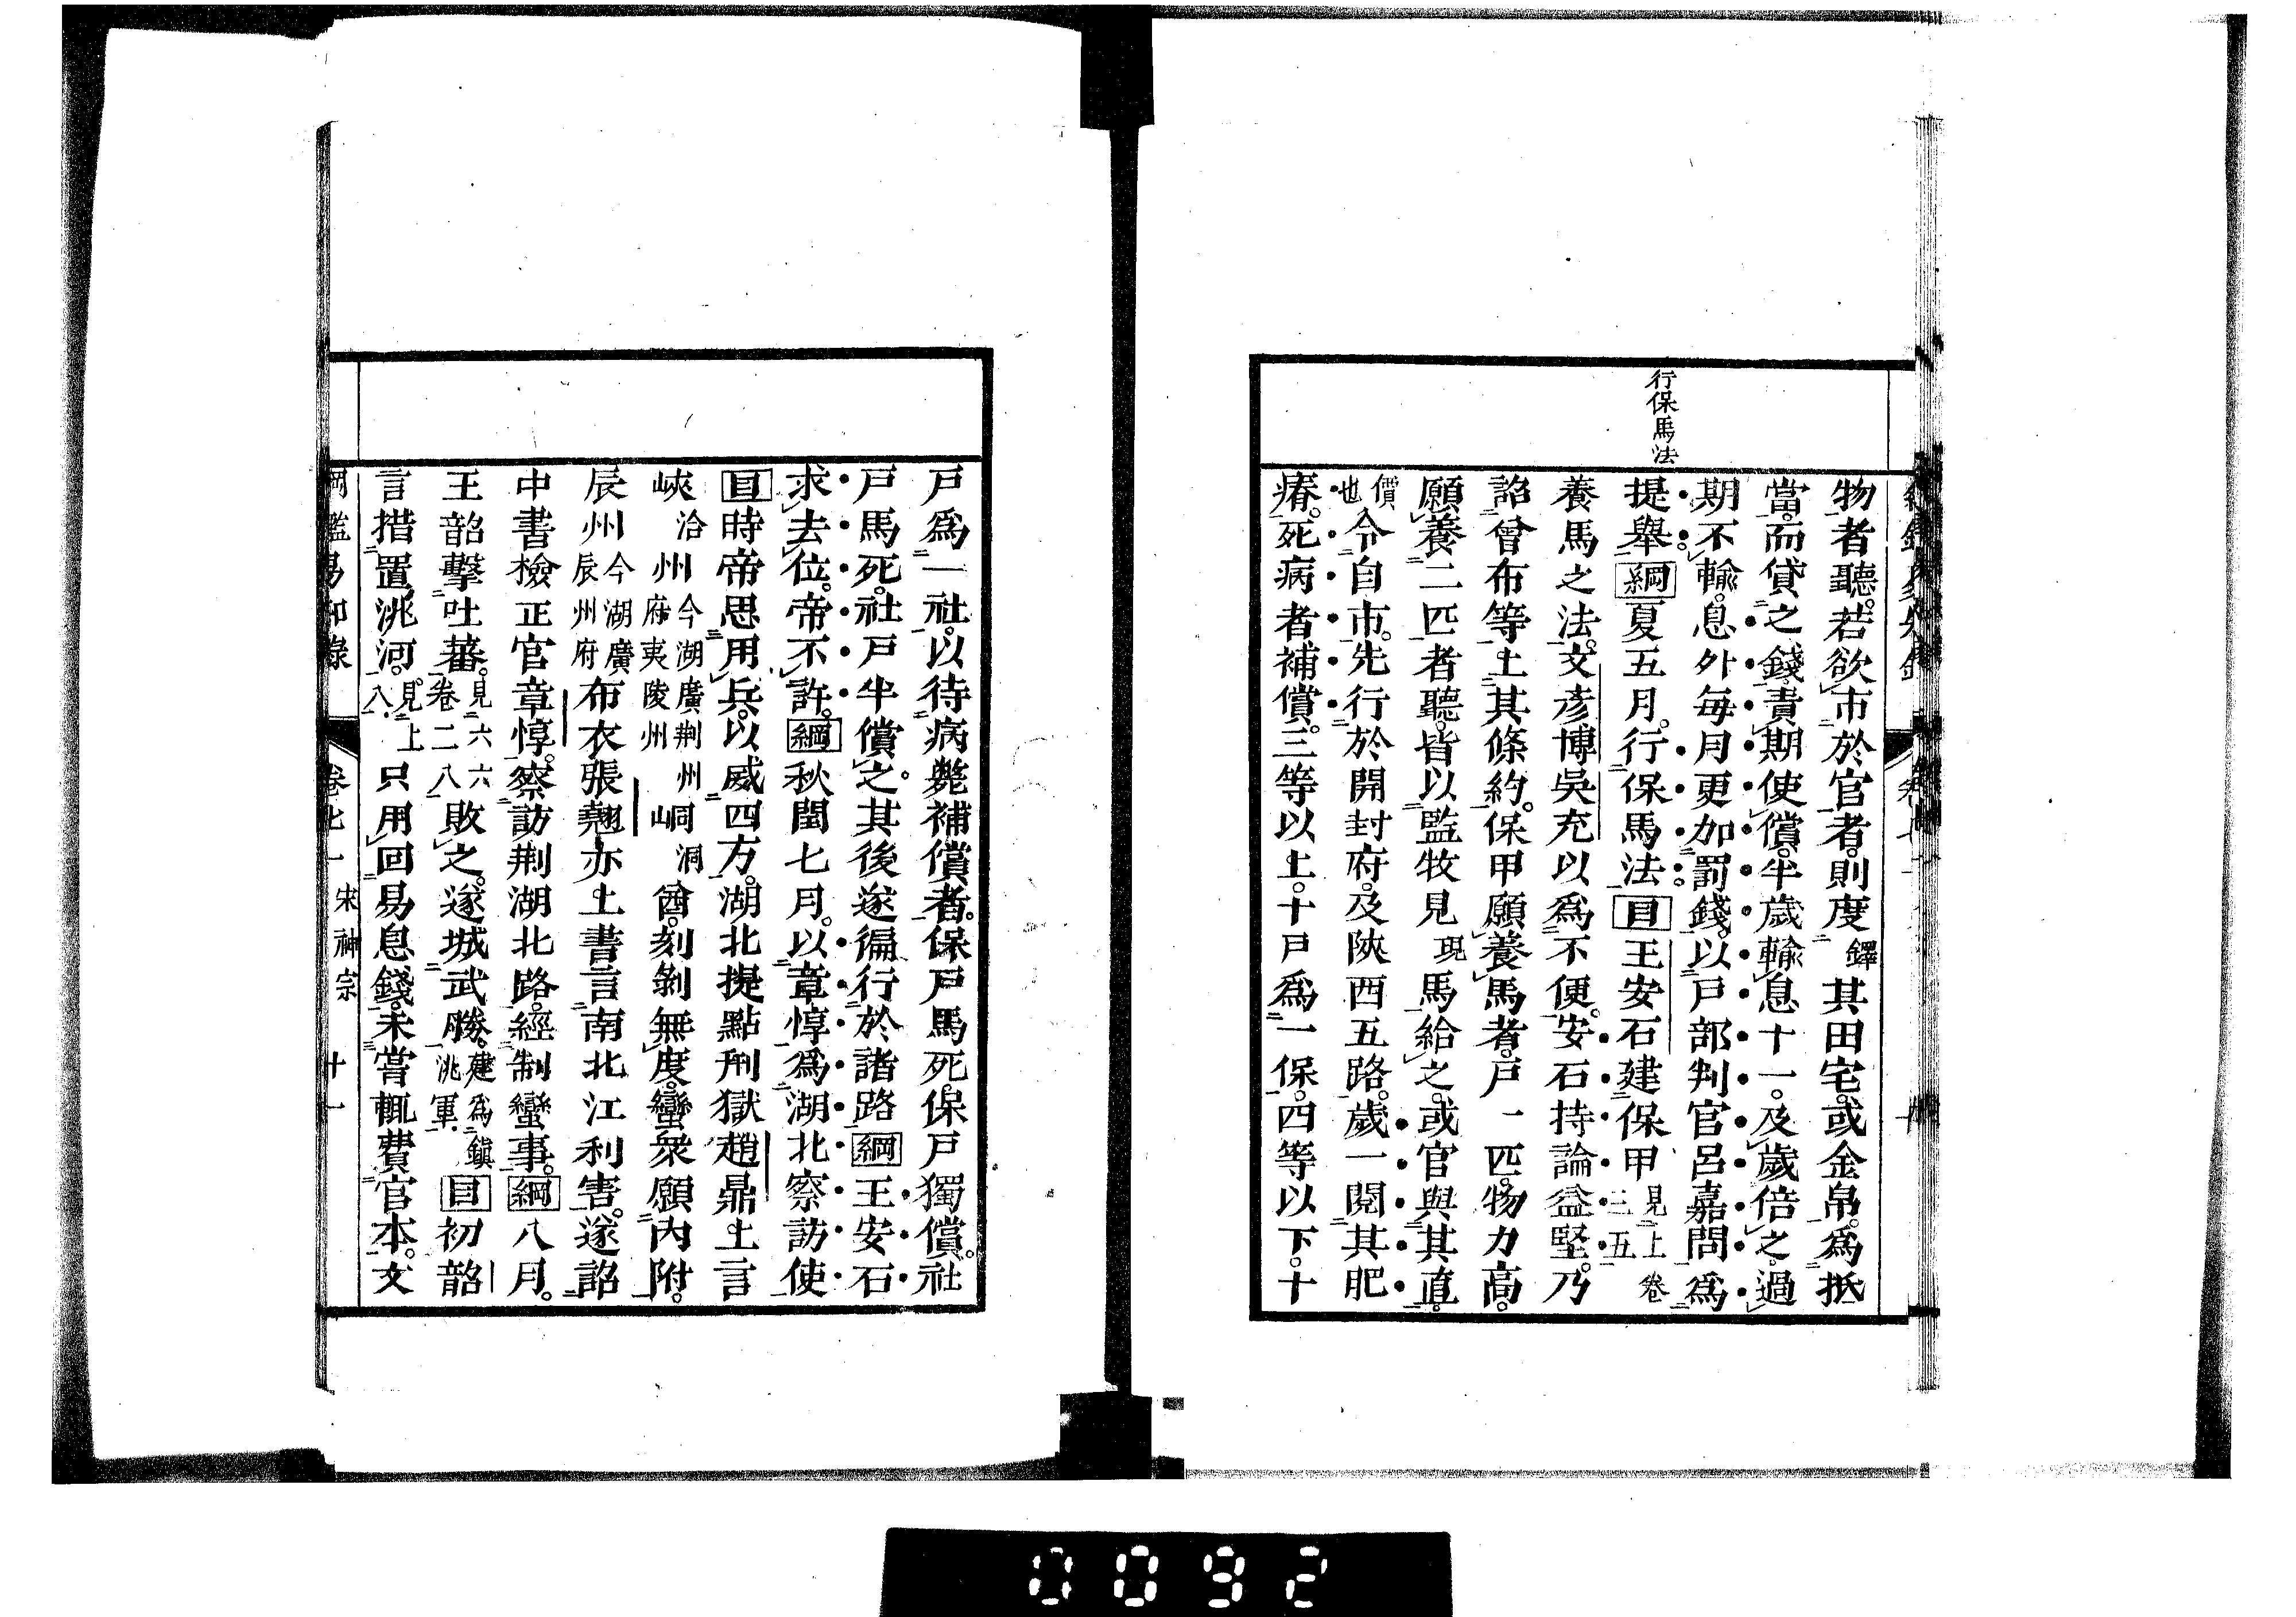 行保馬法
物者聽。若欲市於官者。則度鐸其田宅。或金帛。爲抵
當。而貸之錢。責期使償。半歲輸息十一。及歲倍之。過
期不輸。息外每月更加罰錢。以戶部判官呂嘉問爲
提舉。綱夏五月。行保馬法。目王安石建保甲見上卷三五
養馬之法。文彥博吳充以爲不便。安石持論益堅。乃
詔曾布等。上其條約。保甲願養馬者。戶一匹。物力高。
願養二匹者聽。皆以監牧見現馬給之。或官與其直。
價也令自市。先行於開封府。及陝西五路。歲一閱其肥
瘠。死病者補償。三等以上。十戶爲一保。四等以下。十
戶爲一社。以待病斃補償者。保戶馬死。保戶獨償。社
戶馬死。社戶半償之。其後遂徧行於諸路。綱王安石
求去位。帝不許。綱秋閏七月。以章惇爲湖北察訪使
目時帝思用兵。以威四方。湖北提點刑獄趙鼎上言
峽洽州今湖廣荆州府夷陵州峒洞酋。刻剝無度。蠻衆願內附。
辰州今湖廣辰州府布衣張翹亦上書言南北江利害。遂詔
中書檢正官章惇。察訪荆湖北路。經制蠻事。綱八月。
王韶擊吐蕃。見六六卷二八敗之。遂城武勝。建爲鎮洮軍目初韶
言措置洮河。見上八只用回易息錢。未嘗輒費官本。文
綱鑑易知錄 卷七一 宋神宗 十一